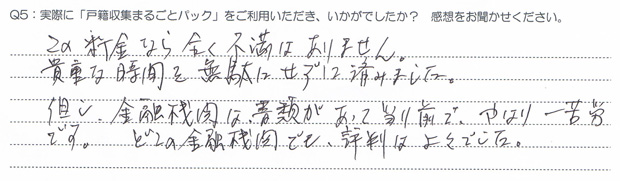 Q5：実際に「戸籍収集まるごとパック」をご利用いただき、いかがでしたか？ 感想をお聞かせください。
この料金なら全く不満はありません。
貴重な時間を無駄にせずに済みました。
但し、金融機関は、書類があって当り前で、やはり一苦労
です。 どこの金融機関でも、評判はよくでした。